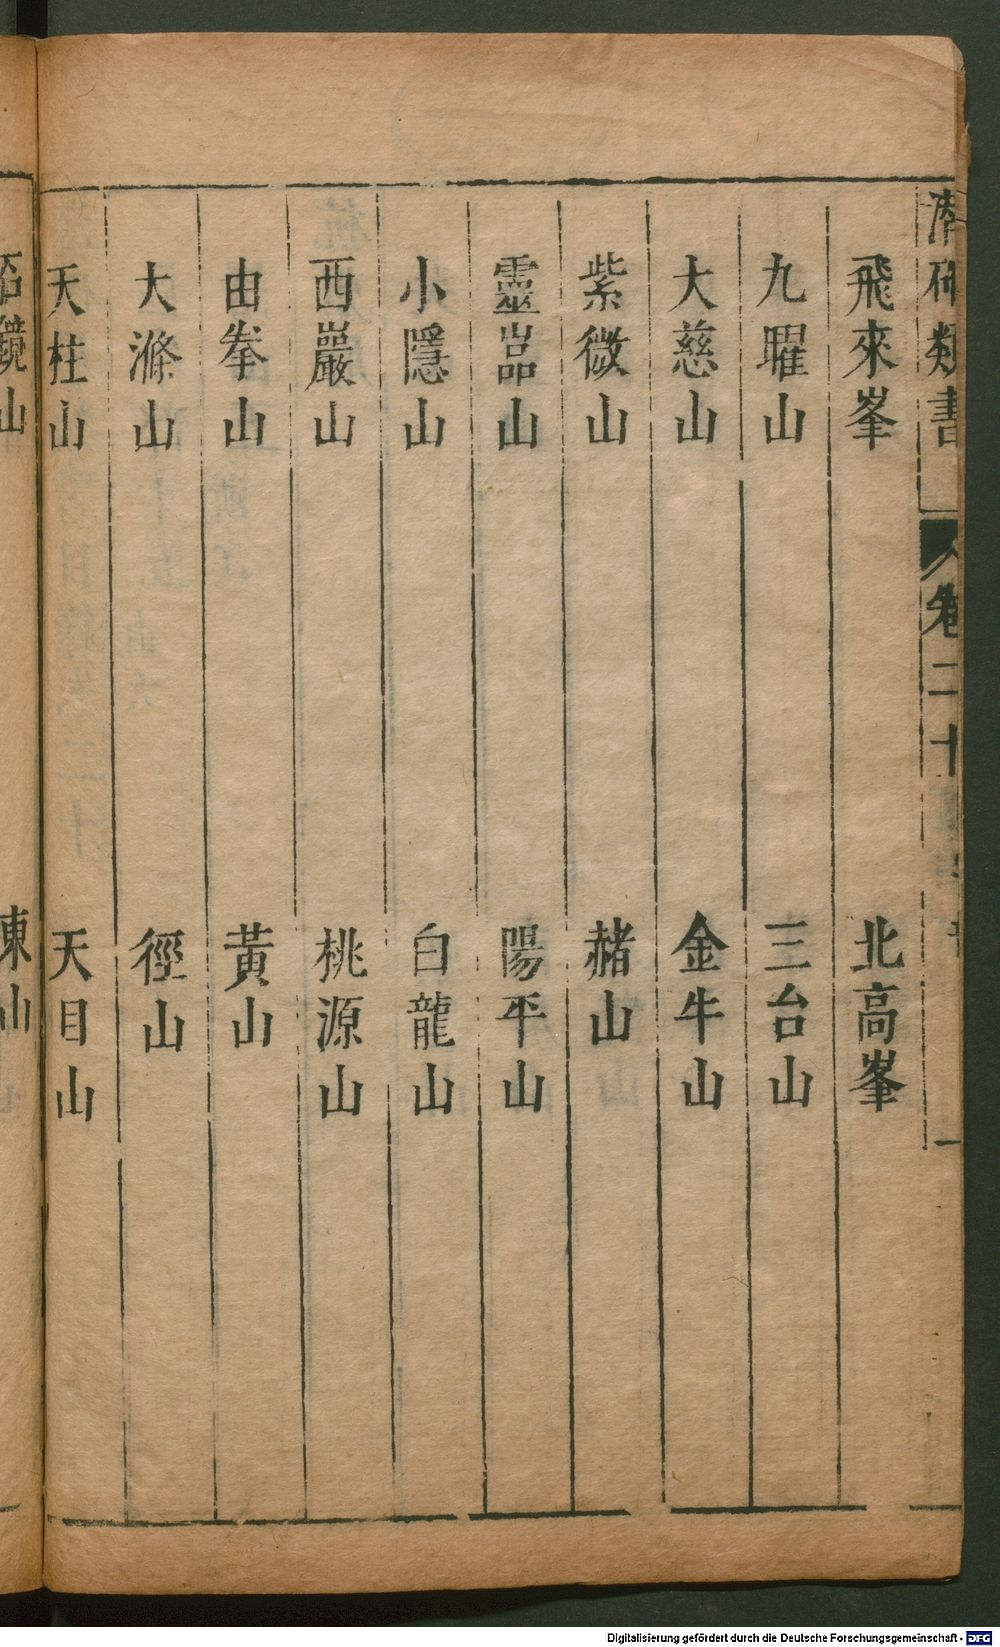 類書
卷二十
一
飛來峯 北高峯
九曜山 三台山
大慈山 金牛山
紫微山 赭山
靈嵓山 陽平山
小隱山 白龍山
西巖山 桃源山
由拳山 黃山
大滌山 徑山
天柱山 天目山
石鏡山 東山
Digitalisierung gefördert durch die Deutsche Forschungsgemeinschaft - DFG